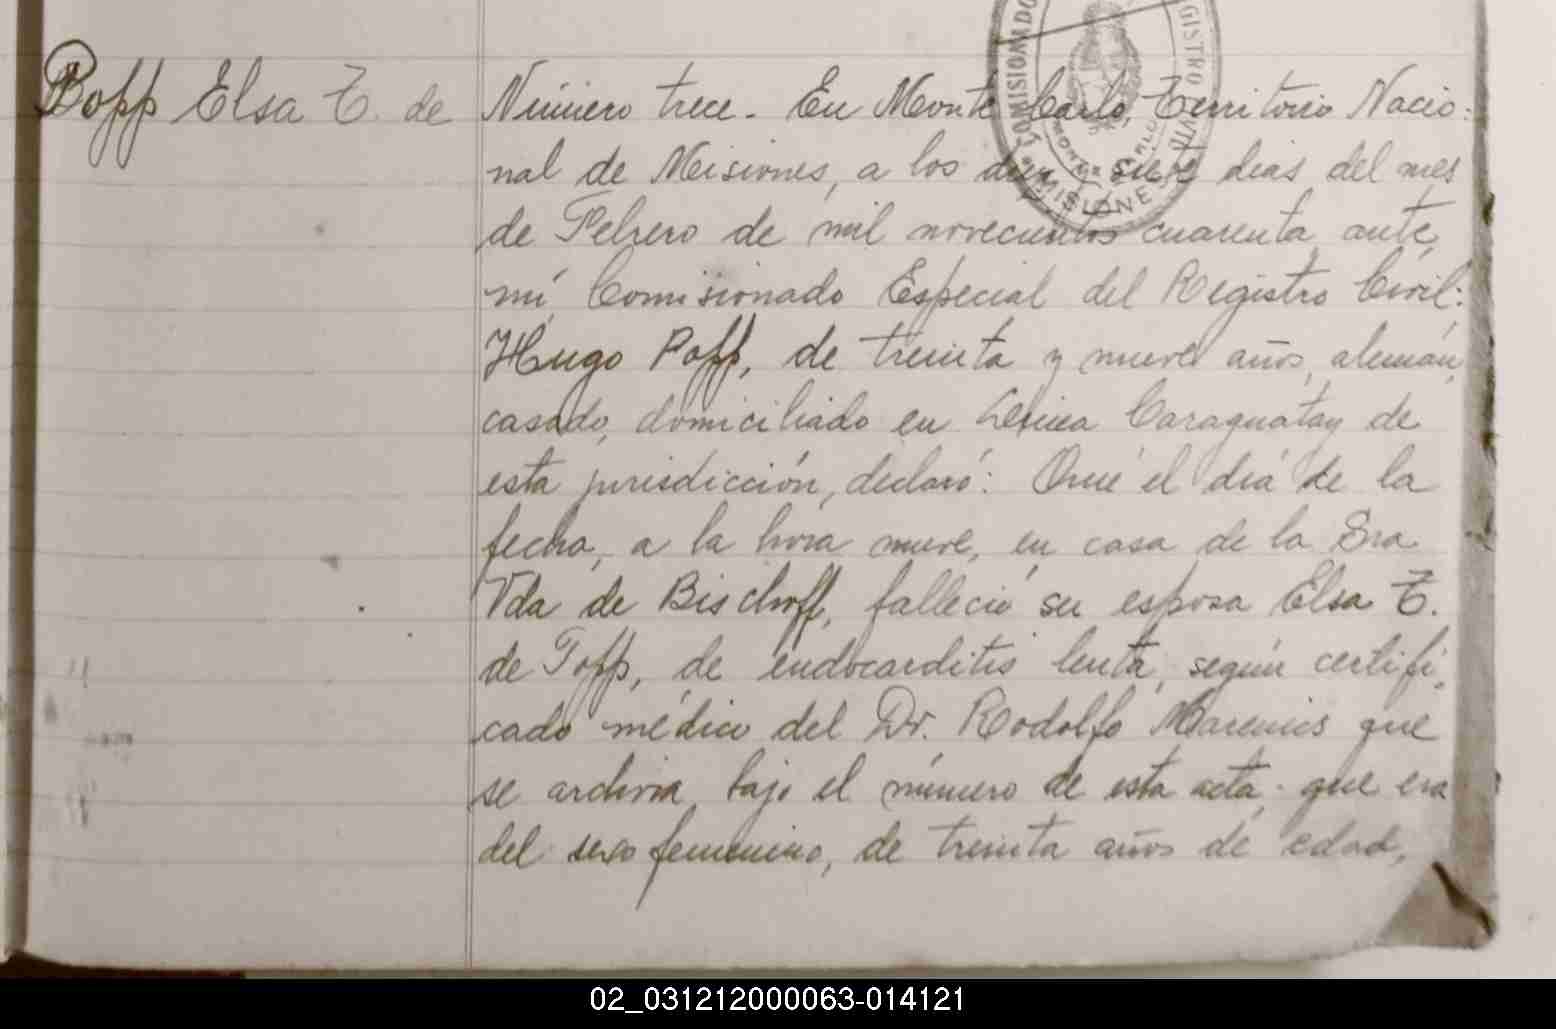 COMISIONADO REGISTRO
MISIONES
Bopp Elsa T. de
Número trece. En Monte Carlo, Territorio Nacio-
nal de Misiones, a los diez y siete dias del mes
de Febrero de mil novecientos cuarenta, ante
mí, Comisionado Especial del Registro Civil:
Hugo Popp, de treinta y nueve años, alemán,
casado, domiciliado en Linea Caraguatay de
esta jurisdicción, declaró: Que el día de la
fecha, a la hora nueve, en casa de la Sra
Vda de Bischoff, falleció su esposa Elsa T.
de Popp, de endocarditis lenta, según certifi-
cado médico del Dr. Rodolfo que
se archiva bajo el número de esta acta; que era
del sexo femenino, de treinta años de edad,
02_031212000063-014121